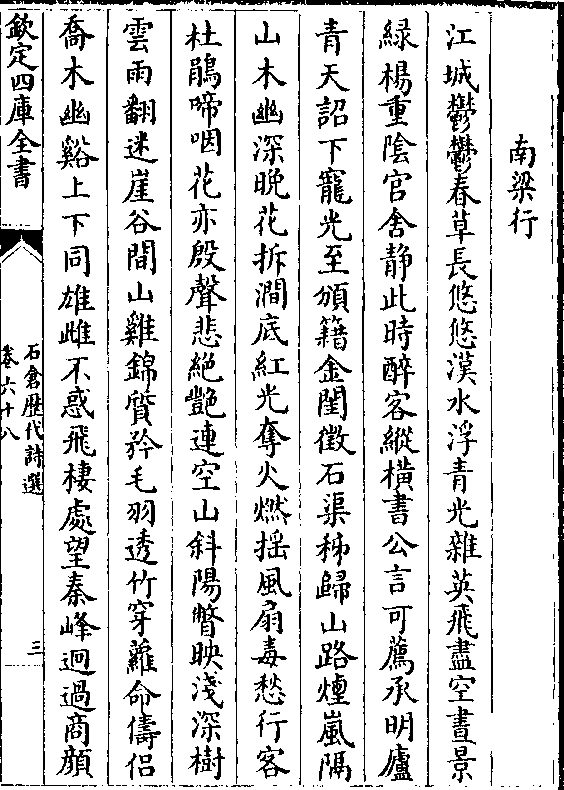 南梁行
江城鬱鬱春草長悠悠漢水浮青光雜英飛盡空晝景
緑楊重陰官舍静此時醉客縱横書公言可薦承明廬
青天詔下寵光至頒籍金閨徵石渠秭歸山路煙嵐隔
山木幽深晚花拆澗底紅光奪火燃揺風扇毒愁行客
杜鵑啼咽花亦殷聲悲絶艷連空山斜陽瞥映淺深樹
雲雨翻迷崖谷間山雞錦質矜毛羽透竹穿蘿命儔侣
喬木幽谿上下同雄雌不惑飛棲處望秦峰迥過商顔
欽定四庫全書
石倉歴代詩選
卷六十八
三